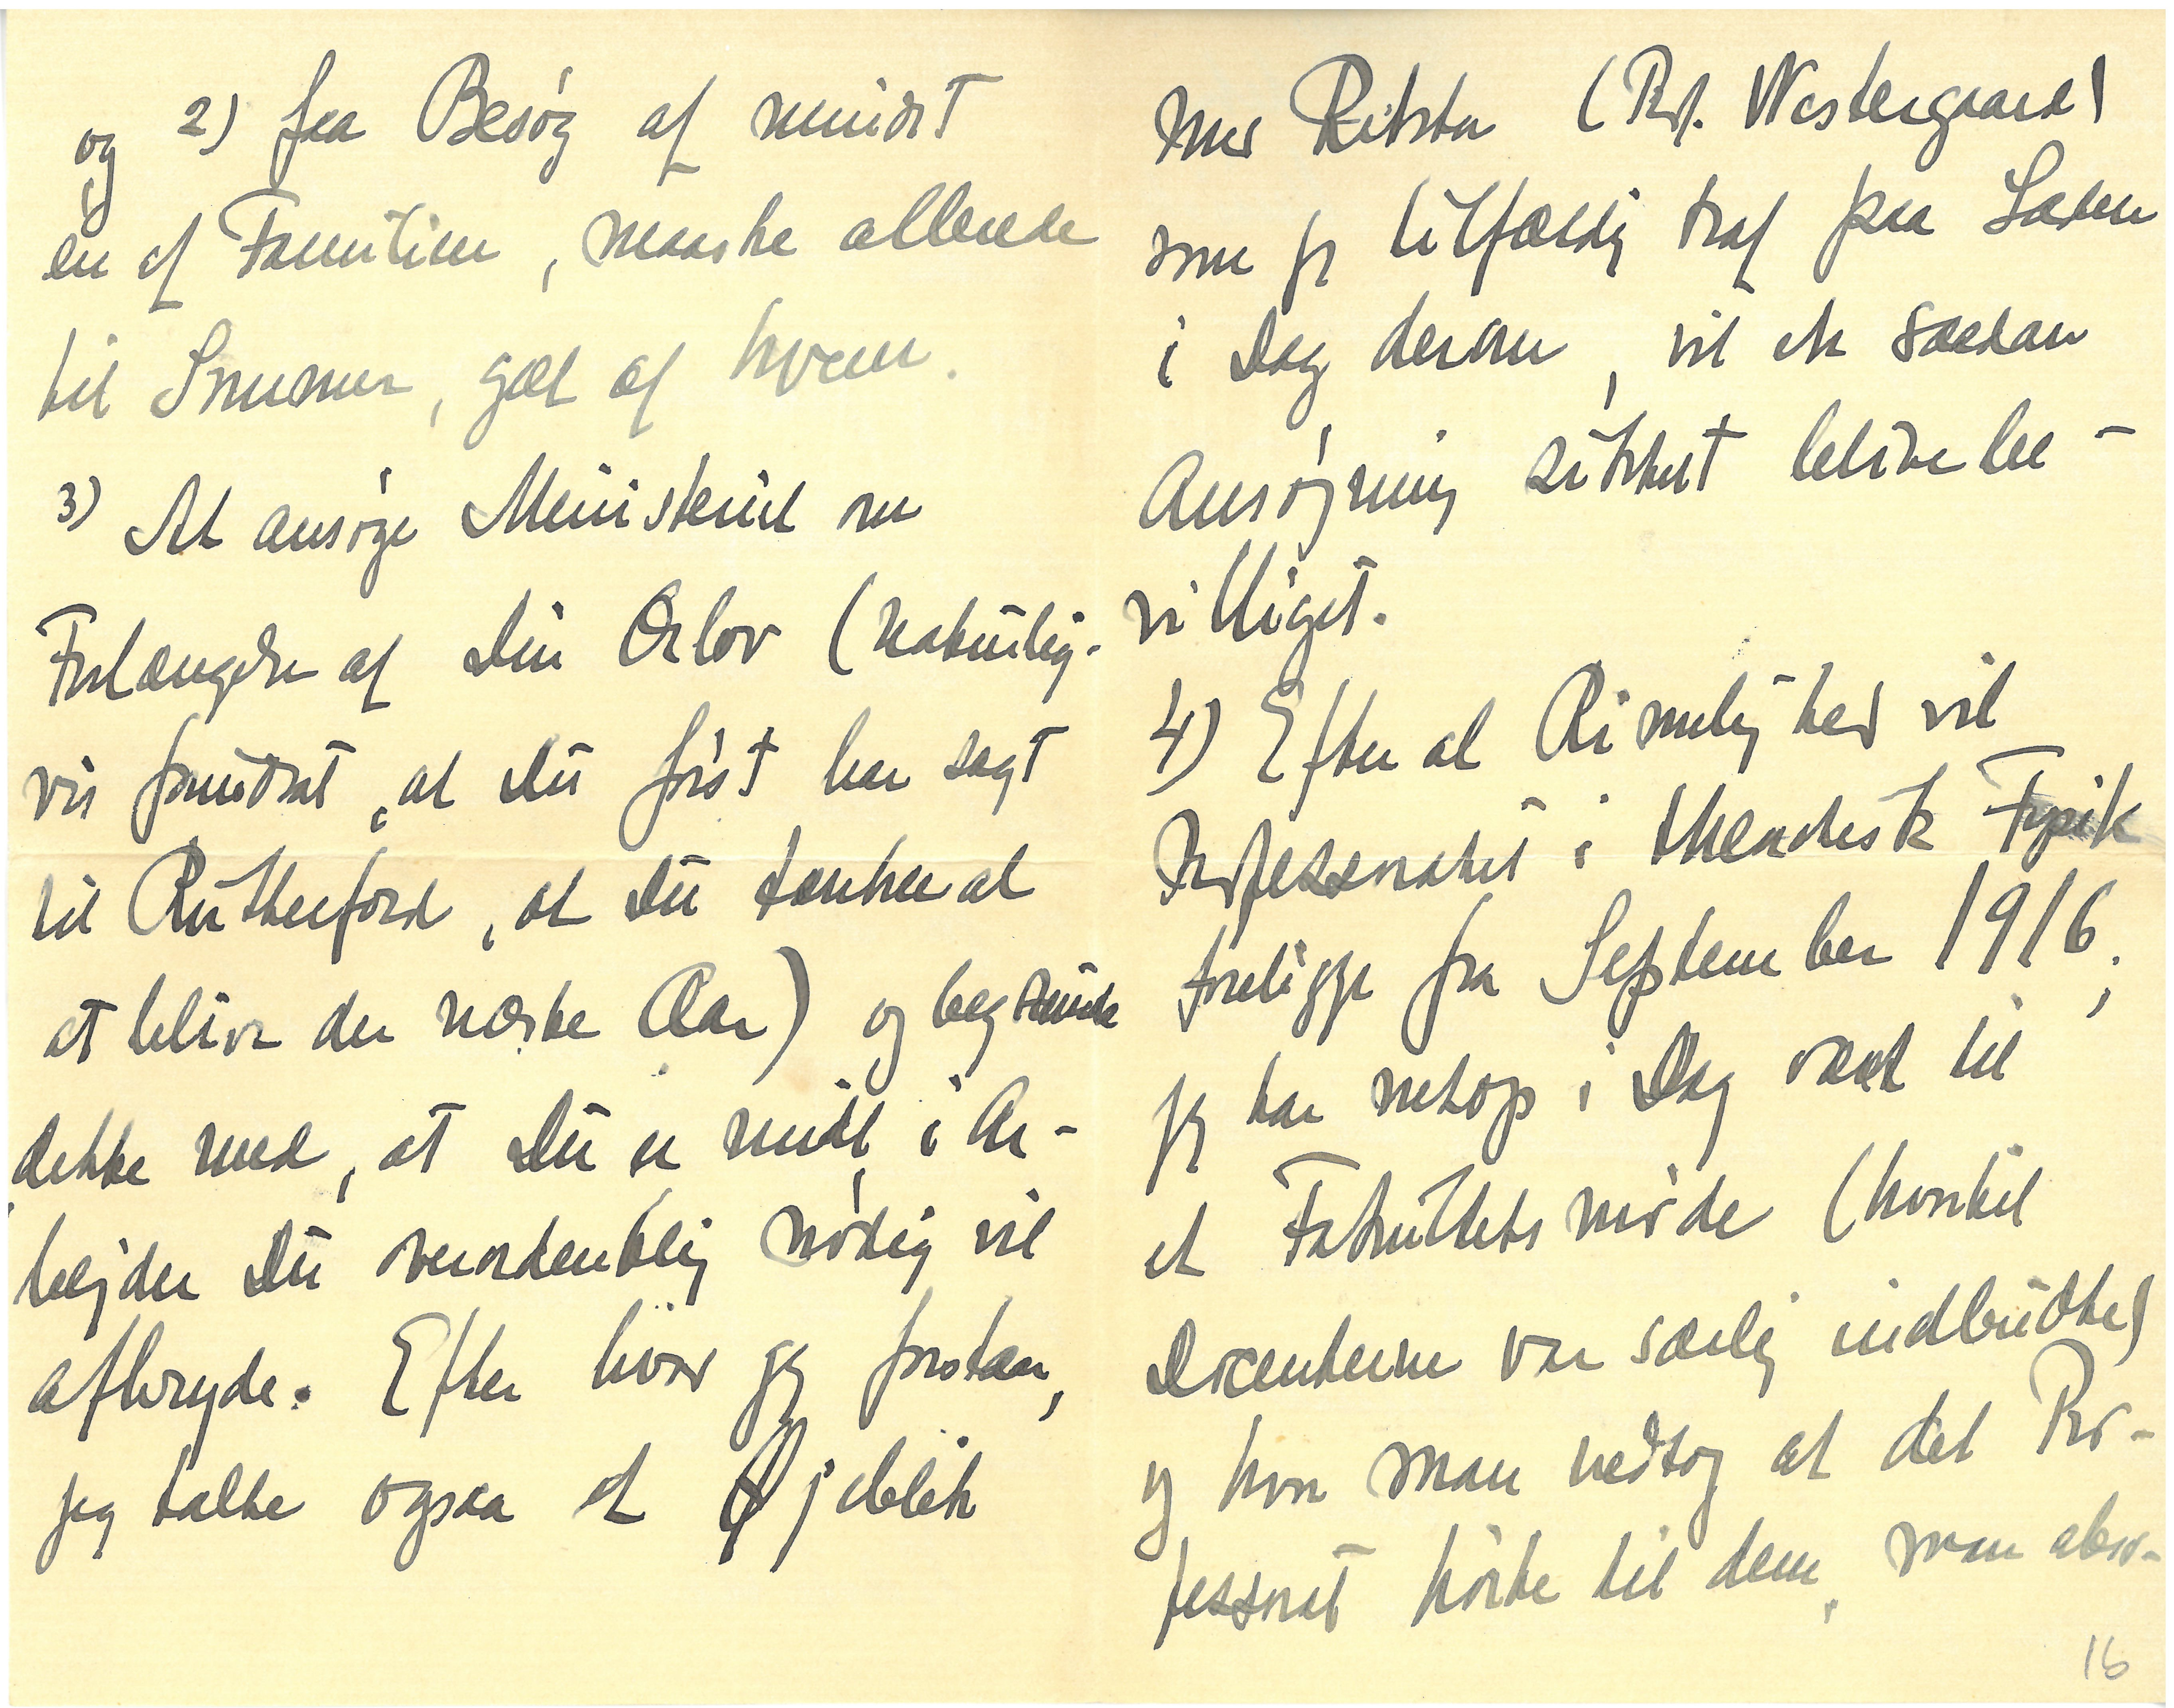 og 2) faa Besøg af mindst
en af Familien, maaske allerede
til Sommer, gæt af hvem.
3) At ansøge Ministeriet om
Forlængelse af Din Orlov (naturlig-
vis forudsat, at Du først har sagt
til Rutherford, at Du tænker at
at blive der næste Aar) og begrunde
dette med, at Du er midt i Ar-
bejder Du overordentlig nødig vil
afbryde. Efter hvad jeg forstaar,
jeg talte ogsaa et Øjeblik
med Rektor (Prof. Westergaard)
som jeg tilfældig traf paa Gaden
i Dag derom, vil et saadan
Ansøgning sikkert blive be-
villiget.
4) Efter al Rimelighed vil
Professoratet i theoretisk Fysik
foreligge fra September 1916;
jeg har netop i Dag været til
et Fakultetsmøde (hvortil
Docenterne var særlig indbudte)
og hvor man vedtog at det Pro-
fessorat hørte til dem, man abso-
16